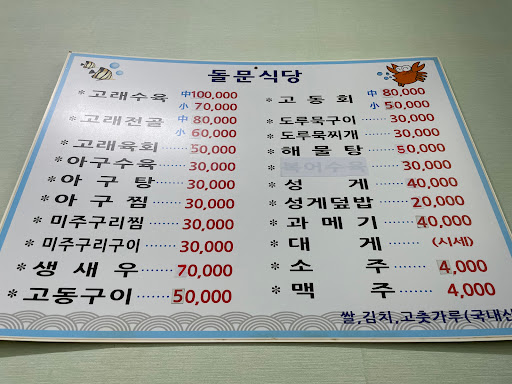 돌문식당
* 고래수육 中 100,000
小 70,000
* 고래전골 中 80,000
小 60,000
* 고래육회 ...... 50,000
* 아구수육 ...... 30,000
* 아구탕 ...... 30,000
* 아구찜 ...... 30,000
* 미주구리찜 ...... 30,000
* 미주구리구이 ...... 30,000
* 생새우 ...... 70,000
* 고동구이 ...... 50,000
* 고동회 中 80,000
小 50,000
* 도루묵구이 ...... 30,000
* 도루묵찌개 ...... 30,000
* 해물탕 ...... 50,000
* 복어수육 ...... 30,000
* 성게 ...... 40,000
* 성게덮밥 ...... 20,000
* 과메기 ...... 40,000
* 대게 ...... (시세)
* 소주 ...... 4,000
* 맥주 ...... 4,000
쌀,김치,고춧가루(국내산